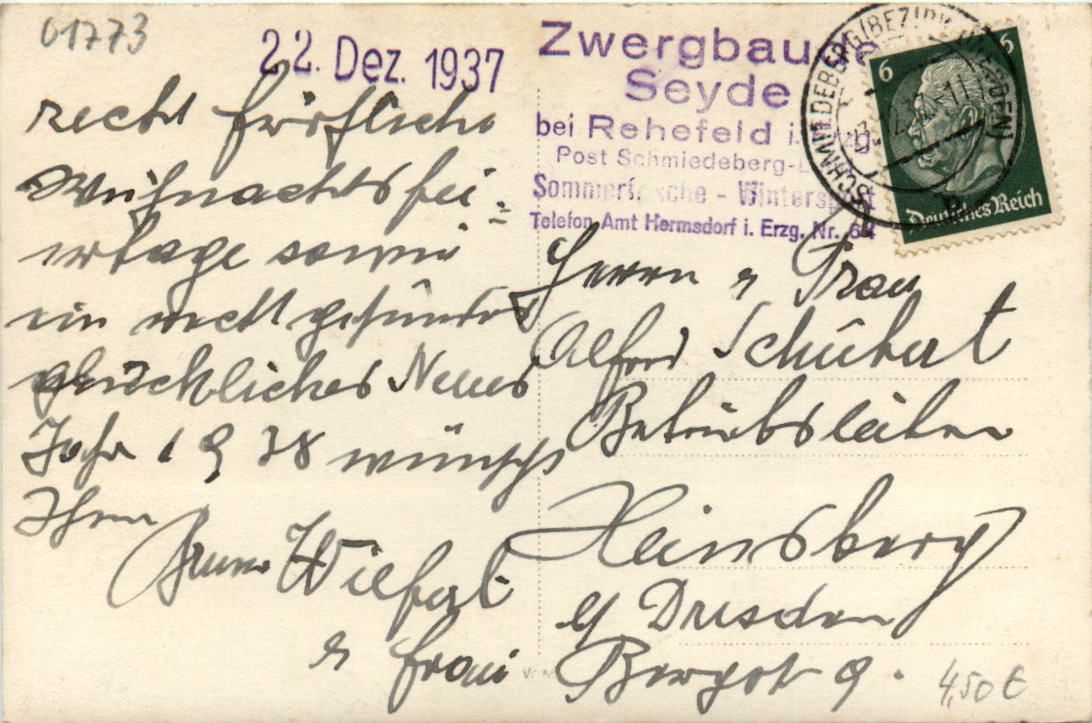 01773
22. Dez. 1937
recht fröhliche
Weihnachtsfei=
ertage sowie
ein recht gesundes
glückliches Neues
Jahr 1938 wünscht
Ihnen
Wiefert
u Frau
Zwergbaude
Seyde
bei Rehefeld i. Erzg.
Post Schmiedeberg-
Sommerfrische - Wintersport
Telefon Amt Hermsdorf i. Erzg. Nr. 64
SCHMIEDEBERG (BEZIRK DRESDEN)
6
6
Deutsches Reich
Herrn u Frau
Alfred Schubert
Betriebsleiter
Hainsberg
b/ Dresden
9.
4,50 €